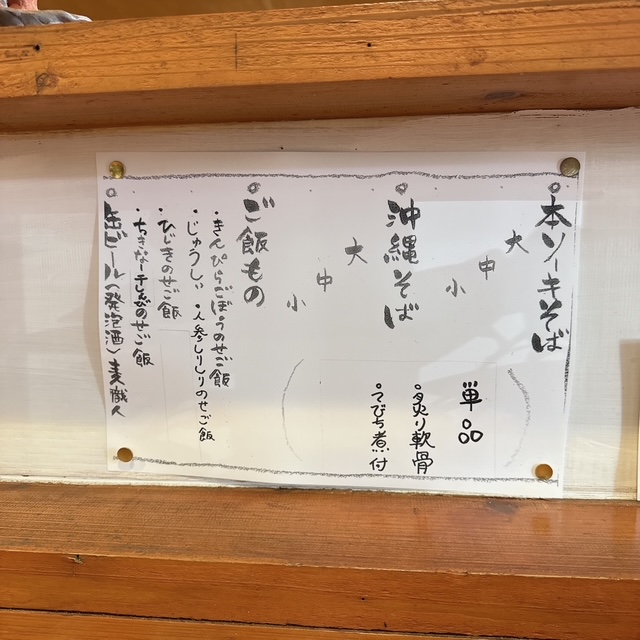 本ソーキそば
大
中
小
沖縄そば
大
中
小
単品
・炙り軟骨
・てびち煮付
ご飯もの
・きんぴらごぼうのせご飯
・じゅうしぃ
・人参しりしりのせご飯
・ひじきのせご飯
・ちきなーチャンプのせご飯
缶ビール(発泡酒)麦職人